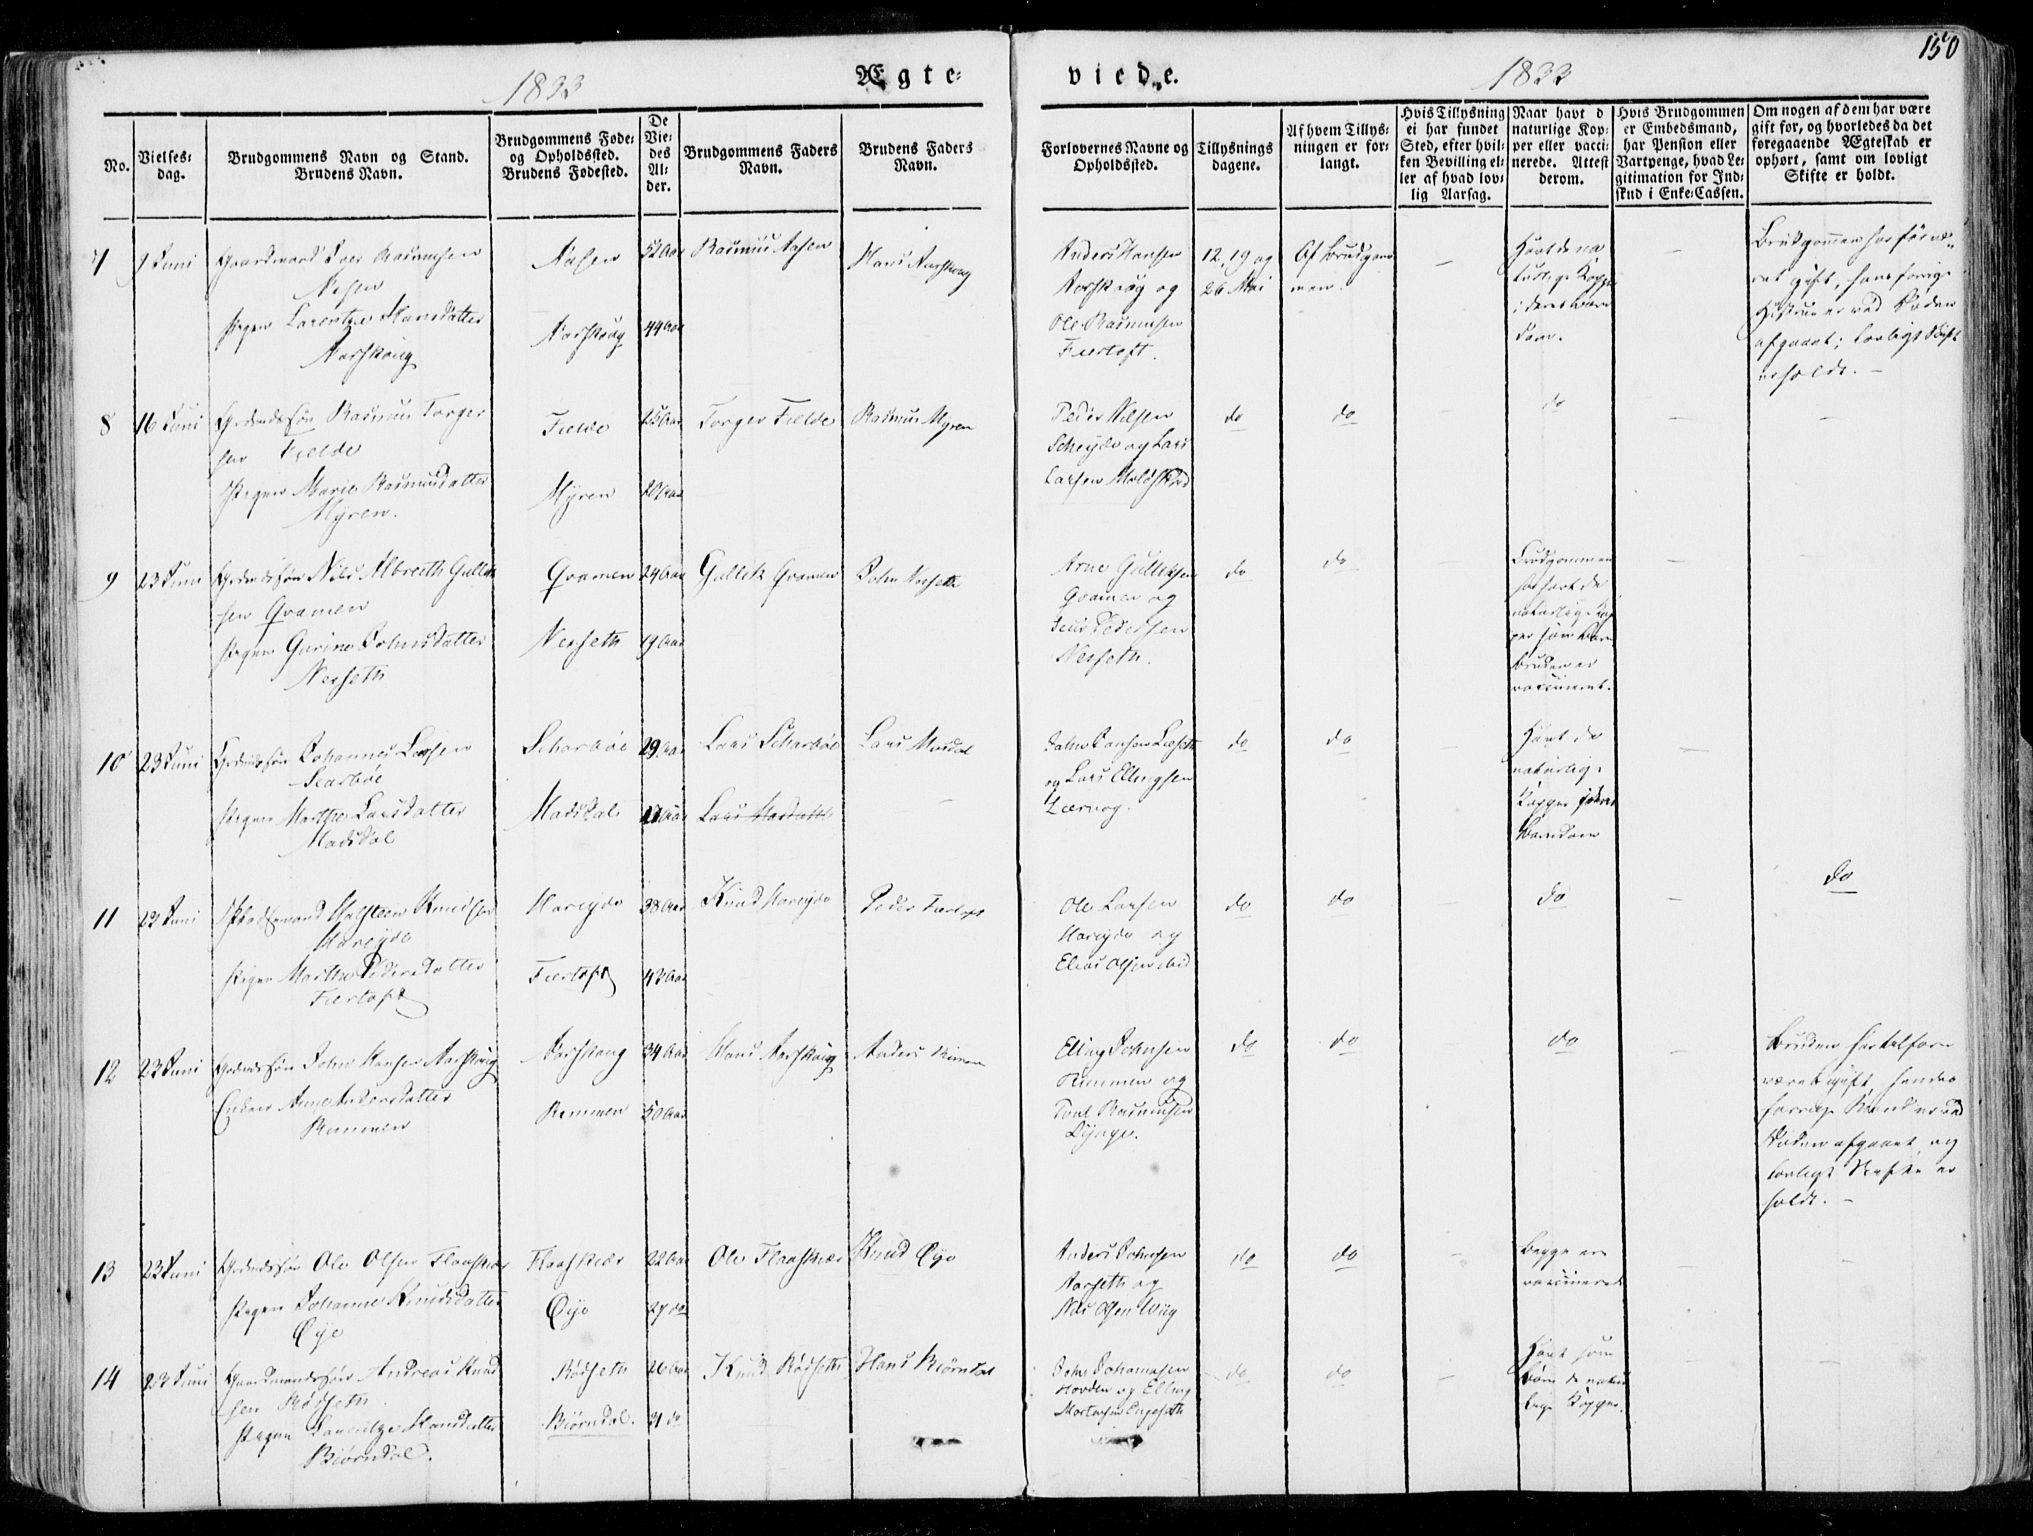 150
1833
Ægte-
viede.
1833
No.
Vielses-
dag.
Brudgommens Navn og Stand.
Brudens Navn.
Brudgommens Føde-
og Opholdssted.
Brudens Fødested.
De
Vie-
des
Al-
der.
Brudgommens Faders
Navn.
Brudens Faders
Navn.
Forlovernes Navne og
Opholdssted.
Tillysnings
dagene.
Af hvem Tillys-
ningen er for-
langt.
Hvis Tillysning
ei har fundet
Sted, efter hvil-
ken Bevilling el-
ler af hvad lov-
lig Aarsag.
Naar havt d
naturlige Kop-
per eller vacci-
nerede. Attest
derom.
Hvis Brudgommen
er Embedsmand,
har Pension eller
Vartpenge, hvad Le-
gitimation for Ind-
skud i Enke-Cassen.
Om nogen af dem har være
gift før, og hvorledes da det
foregaaende Ægteskab er
ophørt, samt om lovligt
Skifte er holdt.
7
9 Juni
Gaardmand Iver Rasmusen
Aasen
Pigen Larentze Hansdatter
Aarskoug
Aasen
Aarskoug
52 Aar
44 Aar
Rasmus Aasen
Hans Aarskoug
Anders Hansen
Aarskoug og
Ole Rasmusen
Fiertoft.
12, 19 og
26 Mai
Af Brudgom
men.
Havt de na
turlige Kopper
i deres Barn
dom.
Brudgommen har før væ
ret gift, hans forrige
Hustrue er ved Døden
afgaaet; lovligt Skifte
er holdt. –
8
16 Juni
Gmdssøn Rasmus Torger
sen Fielde
Pigen Marie Rasmusdatter
Myren.
Fielde
Myren
25 Aar
20 Aar
Torger Fielde
Rasmus Myren
Peder Nilsen
Scheide og Lars
Larsen Moldskred
do
do
do
9
23 Juni
Gmdssøn Nils Albreth Gullik
sen Qvamen
Pigen Gurine Johnsdatter
Nesseth
Qvamen
Nesseth
24 Aar
19 Aar
Gullik Qvamen
John Nesseth
Arne Gulliksen
Qvamen og
Jens Pedersen
Nesseth.
do
do
Brudgommen
har havt de
naturlige Kop
per som Barn
Bruden er
vaccineret.
10
23 Juni
Gmdssøn Johannes Larsen
Scarbøe
Pigen Marthe Larsdatter
Madsdal
Scharbøe
Madsdal
29 Aar
Lars Scharbøe
Lars Masdal
Lars Masdahl
og Lars Ellingsen
do
do
Havt de
naturlige
Kopper i deres
Barndom
11
23 Juni
Halsteen Knudsen
Hareide
Pigen Marthe Pedersdatter
Fiertoft
Hareide
Fiertoft
38 Aar
43 Aar
Knud Hareide
Peder Fiertoft
Ole Larsen
Hareide og
Elias Olsen ibid
do
do
do
do
12
23 Juni
Gmdssøn John Hansen Aarskoug
Enken Anne Andersdatter
Rimmen
Aarskoug
Rimmen
34 Aar
50 Aar
Hans Aarskoug
Anders Rimen
Elling Johnsen
Rimmen og
Rasmusen
Dynge.
do
do
do
Bruden har tilforn
været gift, hendes
forrige Mand er ved
Døden afgaaet, og
lovligt Skifte er
holdt. –
13
23 Juni
Gmdssøn Ole Olsen Flaaskiær
Pigen Johanne Knudsdatter
Øye
Flaaskiær
Øye
22 Aar
27 do
Ole Flaaskiær
Knud Øye
Anders Johnsen
Aarseth og
Nils Olsen Wiig
do
do
Begge ere
vaccinerede
14
23 Juni
Gaardmandssøn Andreas Knud
sen Rødseth
Pigen Hansdatter
Biørndal.
Rødseth
Biørndal.
26 Aar
31 do
Knud Rødseth
Hans Biørndal
John Johannesen
Hovden og Elling
Mortensen Engeseth
do
do
Havt som
Børn de natur
lige Kopper.